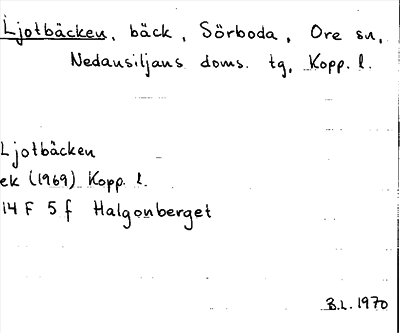 Ljotbäcken, bäck, Sörboda, Ore sn,
Nedansiljans doms. tg, Kopp. l.
Ljotbäcken
ek (1969) Kopp. l.
14 F 5 f Halgonberget
B.L. 1970